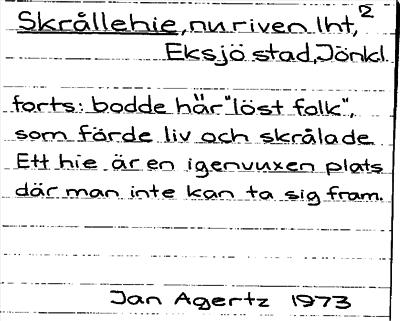 Skrållehie, nu riven lht, 2
Eksjö stad, Jönkl.
forts: bodde här "löst folk",
som förde liv och skrålade
Ett hie är en igenvuxen plats
där man inte kan ta sig fram.
Jan Agertz 1973